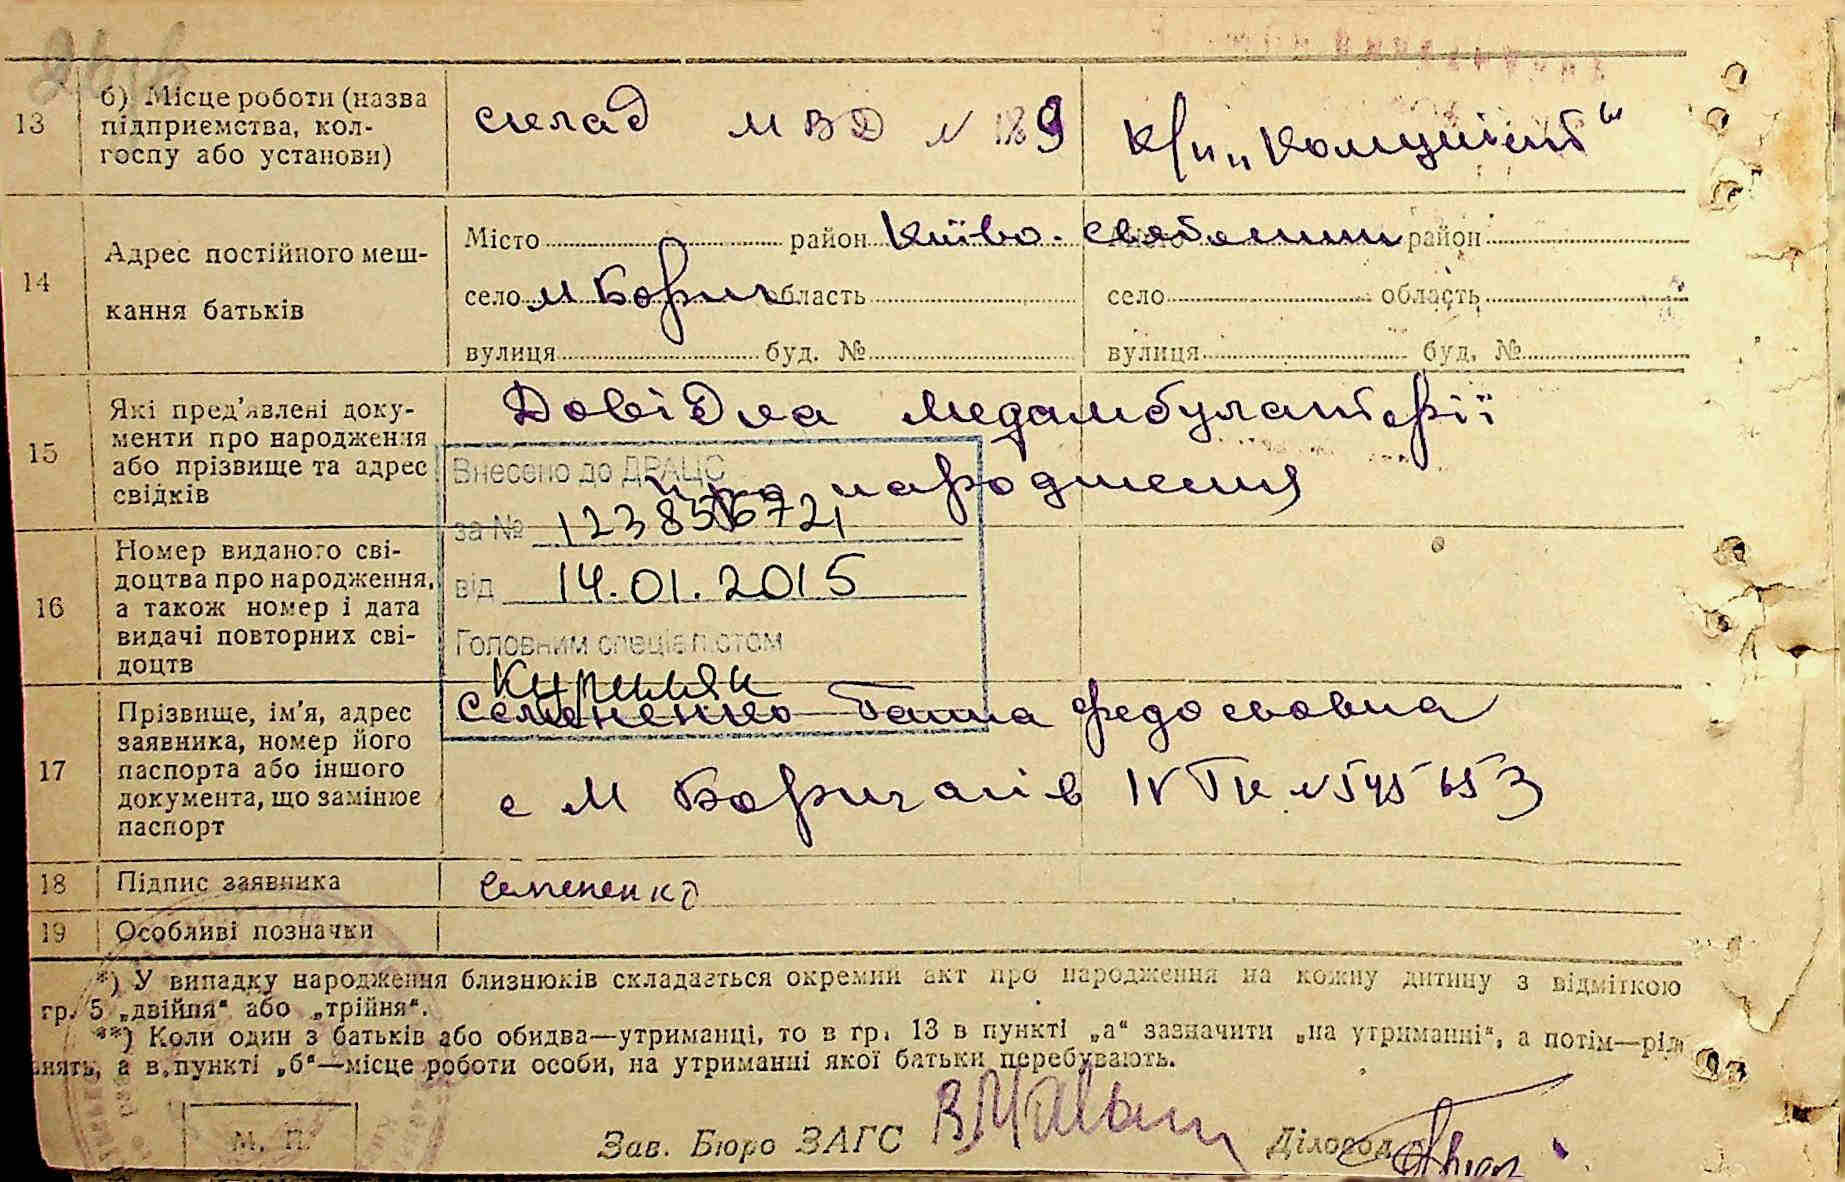 13
б) Місце роботи (назва
підприємства, кол-
госпу або установи)
склад МВД N 189
к/п „Комуніст“
14
Адрес постійного меш-
кання батьків
Місто район Київо-Святошин район
село М Борщ область село область
вулиця буд. № вулиця буд. №
15
Які пред’явлені доку-
менти про народження
або прізвище та адрес
свідків
Довідка медамбулаторії
про народження
Внесено до ДРАЦС
за № 123856721
від 14.01.2015
Головним спеціалістом
16
Номер виданого сві-
доцтва про народження,
а також номер і дата
видачі повторних сві-
доцтв
17
Прізвище, ім’я, адрес
заявника, номер його
паспорта або іншого
документа, що замінює
паспорт
Семененко Ганна Федосовна
с М Борщагів IV ТК N 545653
18
Підпис заявника
Семененко
19
Особливі позначки
*) У випадку народження близнюків складається окремий акт про народження на кожну дитину з відміткою
гр. 5 „двійня“ або „трійня“.
**) Коли один з батьків або обидва—утриманці, то в гр. 13 в пункті „а“ зазначити „на утриманні“, а потім—рід
нять, а в пункті „б“—місце роботи особи, на утриманні якої батьки перебувають.
М. П.
Зав. Бюро ЗАГС
Діловод